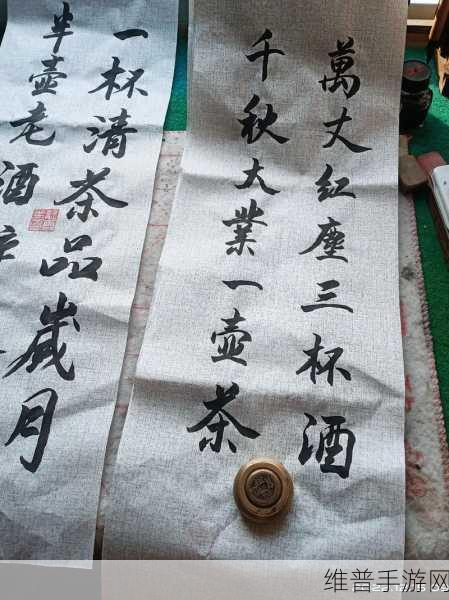 萬丈红塵三杯酒
千秋大業一壺茶
一杯清茶品歲月
半壺老酒
维普手游网